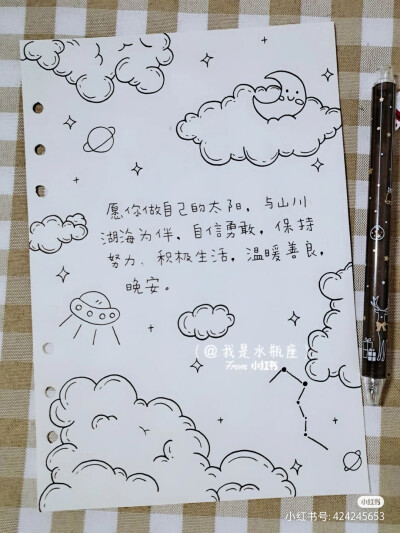 愿你做自己的太阳，与山川
湖海为伴，自信勇敢，保持
努力、积极生活，温暖善良，
晚安。
（@我是水瓶座）
From 小红书
小红书
小红书号: 424245653